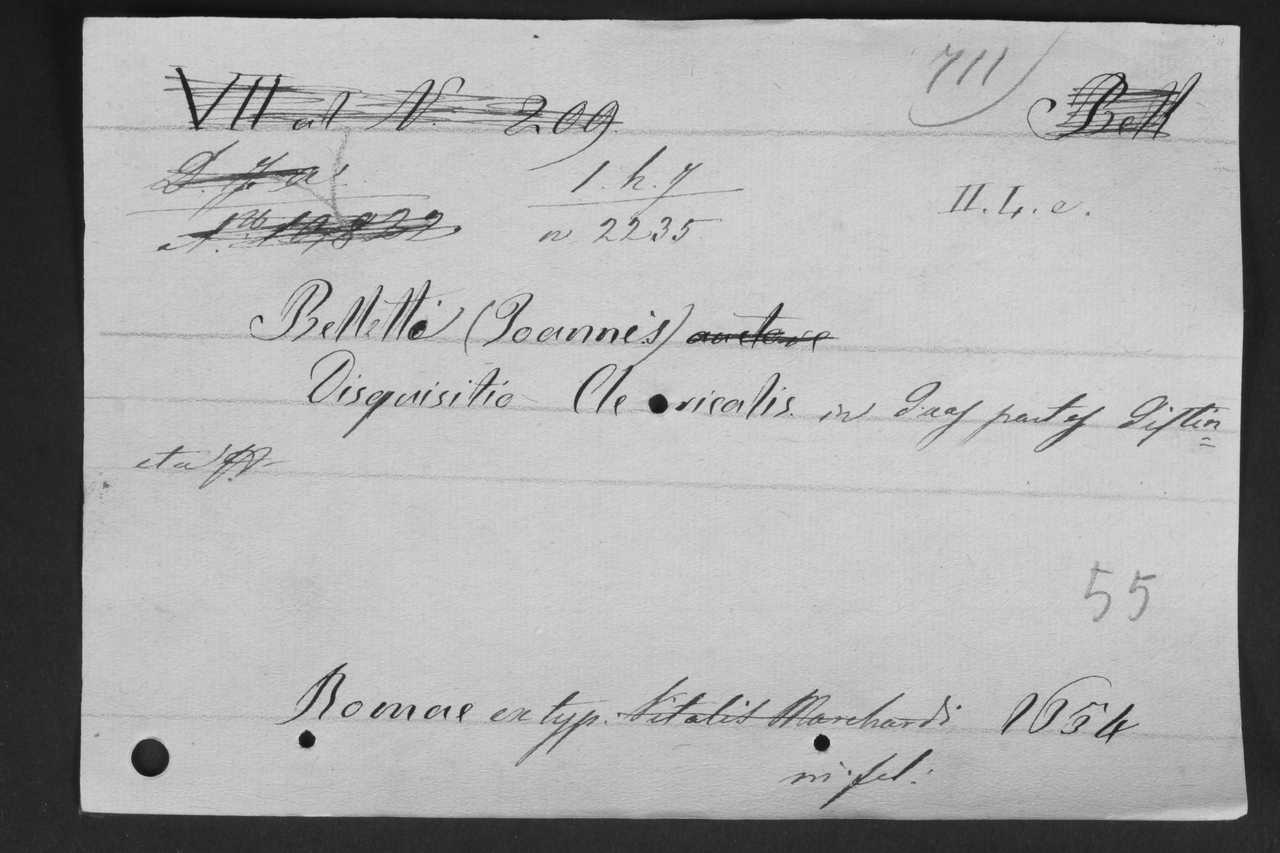 711
VII al N. 209. Bell
1. h. 7
II. 4. e.
N.ro 10,822.
n 2235
Belletti (Joannes) auctore
Disquisitio Clericalis in duas partes distin=
cta
55
Romae ex typ. Vitalis Marchardi 1654
in fol: